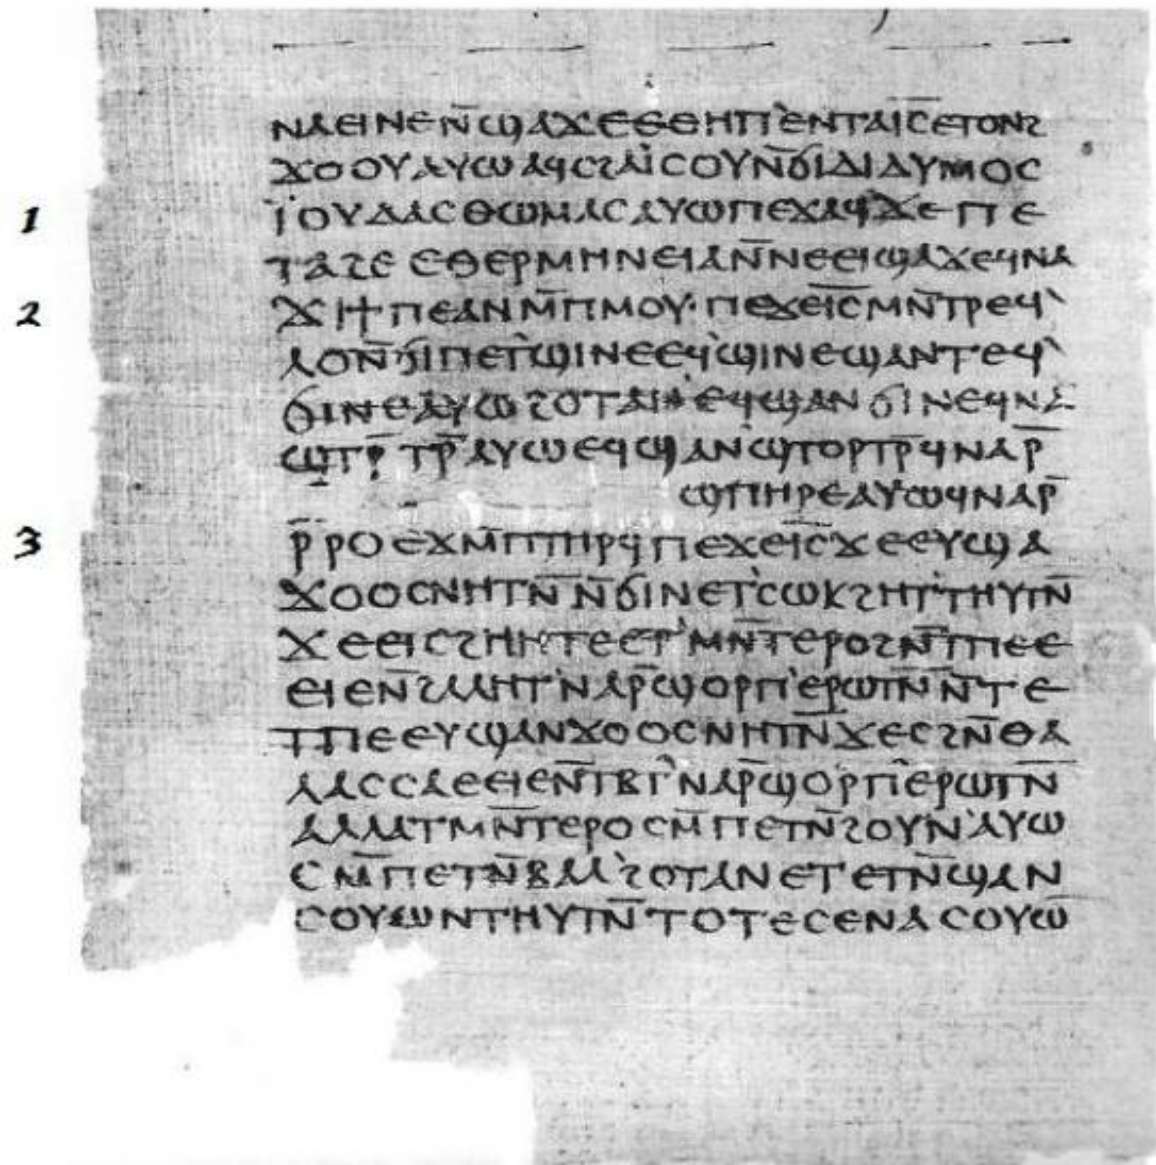 ⲛⲁⲉⲓⲛⲉⲛ̄ϣⲁϫⲉⲉⲑⲏⲡ`ⲉⲛⲧⲁⲓ̅ⲥ̅ⲉⲧⲟⲛϩ
ϫⲟⲟⲩⲁⲩⲱⲁϥⲥϩⲁⲓ̈ⲥⲟⲩⲛ̄ϭⲓⲇⲓⲇⲩⲙⲟⲥ
1 ⲓ̈ⲟⲩⲇⲁⲥⲑⲱⲙⲁⲥⲁⲩⲱⲡⲉϫⲁϥϫⲉⲡⲉ
ⲧⲁϩⲉⲉⲑⲉⲣⲙⲏⲛⲉⲓⲁⲛ̄ⲛⲉⲉⲓϣⲁϫⲉϥⲛⲁ
2 ϫⲓϯⲡⲉⲁⲛⲙ̄ⲡⲙⲟⲩ·ⲡⲉϫⲉⲓ̅ⲥ̅ⲙⲛ̄ⲧⲣⲉϥ`
ⲗⲟⲛ̄ϭⲓⲡⲉⲧ`ϣⲓⲛⲉⲉϥ`ϣⲓⲛⲉϣⲁⲛⲧⲉϥ`
ϭⲓⲛⲉⲁⲩⲱϩⲟⲧⲁⲛⲉϥϣⲁⲛϭⲓⲛⲉϥⲛⲁ
ϣⲧⲣ̄ⲧⲣ̄ⲁⲩⲱⲉϥϣⲁⲛ`ϣⲧⲟⲣⲧⲣ̄ϥⲛⲁⲣ̄
ϣⲡⲏⲣⲉⲁⲩⲱϥⲛⲁⲣ̄
3 ⲣ̄ⲣⲟⲉϫⲙ̄ⲡⲧⲏⲣϥⲡⲉϫⲉⲓ̅ⲥ̅ϫⲉⲉⲩϣⲁ
ϫⲟⲟⲥⲛⲏⲧⲛ̄ⲛ̄ϭⲓⲛⲉⲧ`ⲥⲱⲕϩⲏⲧ`ⲧⲏⲩⲧⲛ̄
ϫⲉⲉⲓⲥϩⲏⲏⲧⲉⲉⲧ`ⲙⲛ̄ⲧⲉⲣⲟϩⲛ̄ⲧⲡⲉⲉ
ⲉⲓⲉⲛ̄ϩⲁⲗⲏⲧ`ⲛⲁⲣ̄ϣⲟⲣⲡ`ⲉⲣⲱⲧⲛ̄ⲛ̄ⲧⲉ
ⲧⲡⲉⲉⲩϣⲁⲛϫⲟⲟⲥⲛⲏⲧⲛ̄ϫⲉⲥϩⲛ̄ⲑⲁ
ⲗⲁⲥⲥⲁⲉⲉⲓⲉⲛ̄ⲧⲃⲧ`ⲛⲁⲣ̄ϣⲟⲣⲡ`ⲉⲣⲱⲧⲛ̄
ⲁⲗⲗⲁⲧⲙⲛ̄ⲧⲉⲣⲟⲥⲙ̄ⲡⲉⲧⲛ̄ϩⲟⲩⲛ`ⲁⲩⲱ
ⲥⲙ̄ⲡⲉⲧⲛ̄ⲃⲁⲗ`ϩⲟⲧⲁⲛⲉⲧⲉⲧⲛ̄ϣⲁⲛ
ⲥⲟⲩⲱⲛⲧⲏⲩⲧⲛ̄ⲧⲟⲧⲉⲥⲉⲛⲁⲥⲟⲩⲱ̄